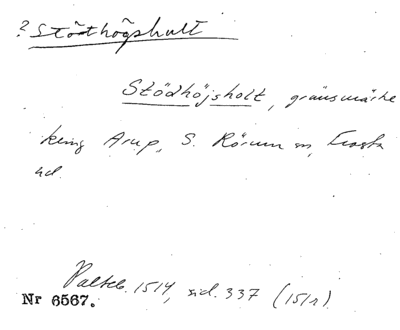 ? Stödhögshult
Stödhöjsholt, gränsmärke
kring Arup, S. Rörum sn, Frosta
hd.
Palteb. 1514, sid. 337 (151r)
Nr 6567.